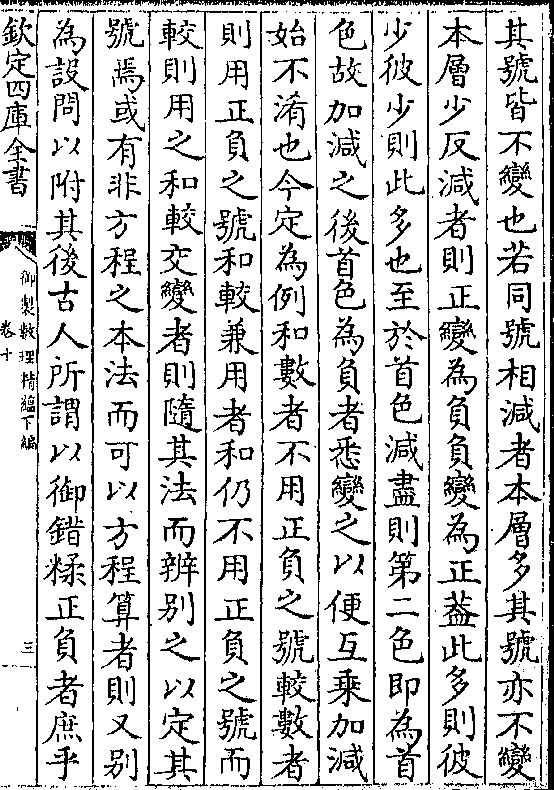 其號皆不變也若同號相減者本層多其號亦不變
本層少反減者則正變為負負變為正葢此多則彼
少彼少則此多也至於首色減盡則第二色即為首
色故加減之後首色為負者悉變之以便互乘加減
始不淆也今定為例和數者不用正負之號較數者
則用正負之號和較兼用者和仍不用正負之號而
較則用之和較交變者則隨其法而辨别之以定其
號焉或有非方程之本法而可以方程算者則又别
為設問以附其後古人所謂以御錯糅正負者庶乎
欽定四庫全書
御製數理精蘊下編
卷十
三